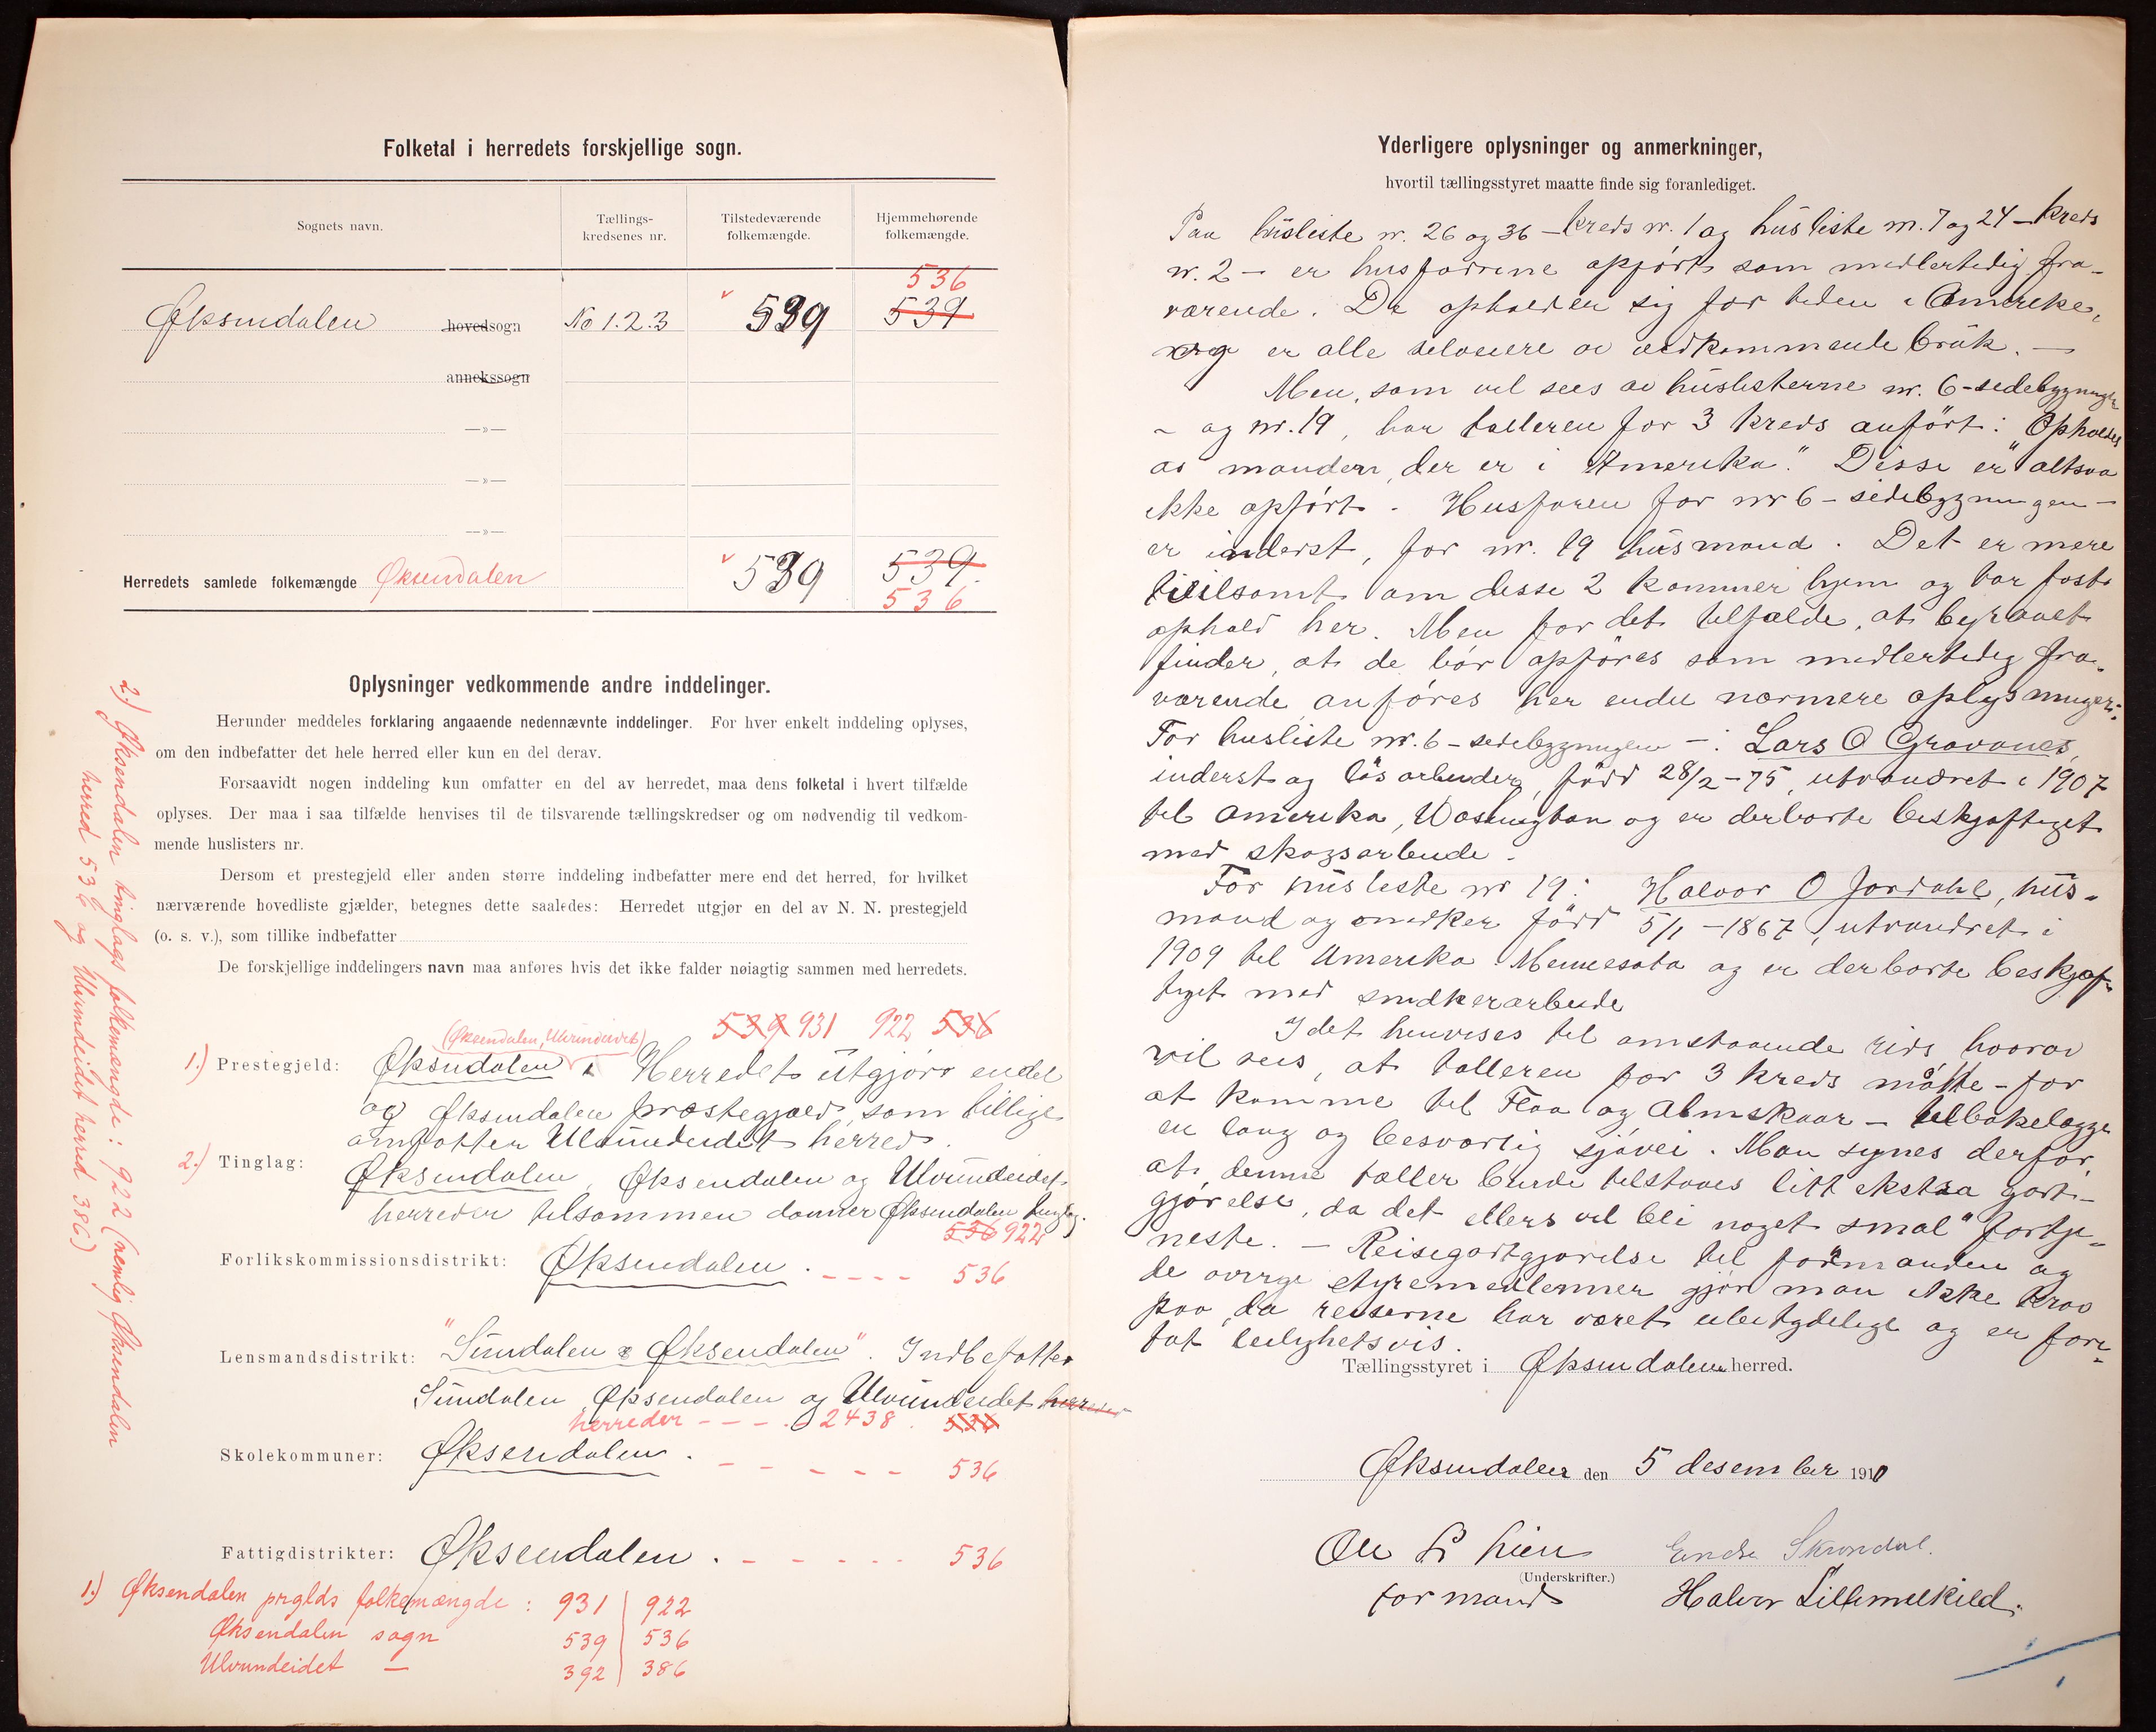 Folketal i herredets forskjellige sogn.
Sognets navn. Tællings-kredsenes nr. Tilstedeværende folkemængde. Hjemmehørende folkemængde.
536
Øksendalen hovedsogn No 1.2.3 539 539
annekssogn
—»—
—»—
—»—
Herredets samlede folkemængde Øksendalen 539 539
536
Oplysninger vedkommende andre inddelinger.
Herunder meddeles forklaring angaaende nedennævnte inddelinger. For hver enkelt inddeling oplyses,
om den indbefatter det hele herred eller kun en del derav.
Forsaavidt nogen inddeling kun omfatter en del av herredet, maa dens folketal i hvert tilfælde
oplyses. Der maa i saa tilfælde henvises til de tilsvarende tællingskredser og om nødvendig til vedkom-
mende huslisters nr.
Dersom et prestegjeld eller anden større inddeling indbefatter mere end det herred, for hvilket
nærværende hovedliste gjælder, betegnes dette saaledes: Herredet utgjør en del av N. N. prestegjeld
(o. s. v.), som tillike indbefatter
De forskjellige inddelingers navn maa anføres hvis det ikke falder nøiagtig sammen med herredets.
(Øksendalen, Ulvundeidet) 539 931 922 536
1.) Prestegjeld: Øksndalen Herredet utgjör endel
av Øksendalen præstegjæld, som tillige
omfatter Ulvundeidet herred.
2.) Tinglag: Øksendalen, Øksendalen og Ulvundeidet
herreder tilsammen danner Øksendalen tinglag.
536 922
Forlikskommissionsdistrikt: Øksendalen. - - - - 536
Lensmandsdistrikt: "Sundalen & Øksendalen". Indbefatter
Sundalen, Øksendalen og Ulvundeidet herreder
herreder - - - . 2438. 536
Skolekommuner: Øksendalen. - - - - - 536
Fattigdistrikter: Øksendalen. - - - - - 536
1.) Øksendalen prglds folkemængde: 931 | 922
Øksendalen sogn 539 | 536
Ulvundeidet — 392 | 386
2.) Øksendalen tinglags folkemængde: 922 (nemlig Øksendalen
herred 536 og Ulvundeidet herred 386)
Yderligere oplysninger og anmerkninger,
hvortil tællingsstyret maatte finde sig foranlediget.
Paa husliste nr. 26 og 36 – kreds nr. 1 og husliste nr. 7 og 24 – kreds
nr. 2 – er husfædrene opført som midlertidig fra-
værende. De opholder sig for tiden i Amerika,
og er alle selveiere av vedkommende bruk. —
Men, som vil sees av huslisterne nr. 6 – sidebygningen
– og nr. 19, har tælleren for 3 kreds anført: "Opholdes
av manden, der er i Amerika." Disse er altsaa
ikke opført. Husfaren for nr 6 – sidebygningen –
er inderst, for nr. 19 husmand. Det er mere
tvilsomt om disse 2 kommer hjem og tar fast
ophold her. Men for det tilfælde, at byraaet
finder, at de bör opføres som midlertidig fra-
værende anføres her endu nærmere oplysninger:
For husliste nr. 6 – sidebygningen –: Lars O Gravanes,
inderst og løsarbeider, född 28/2 – 75, utvandret i 1907
til Amerika, Washington og er derborte beskjæftiget
med skogsarbeide.
For husliste nr 19: Halvor O Jordahl, hus-
mand og snedker född 5/1 – 1867, utvandret i
1909 til Amerika Mennesota og er derborte beskjæf-
tiget med snedkerarbeide
Idet henvises til omstaaende rids, hvorav
vil sees, at tælleren for 3 kreds måtte – for
at komme til Flaa og Almskaar – tilbakelægge
en lang og besværlig sjøvei. Man synes derfor,
at denne tæller burde tilstaaes litt ekstra godt-
gjörelse, da det ellers vil bli noget "smal" fortje-
neste. – Reisegodtgjørelse til formanden og
de øvrige styremedlemmer gjør man ikke krav
paa, da reiserne har været ubetydelige og er fore-
tat leilighetsvis.
Tællingsstyret i Øksendalen herred.
Øksendalen den 5 desember 1910
Ole L Lien Endre Skrondal.
(Underskrifter.)
formand Halvor Lillemelkild.